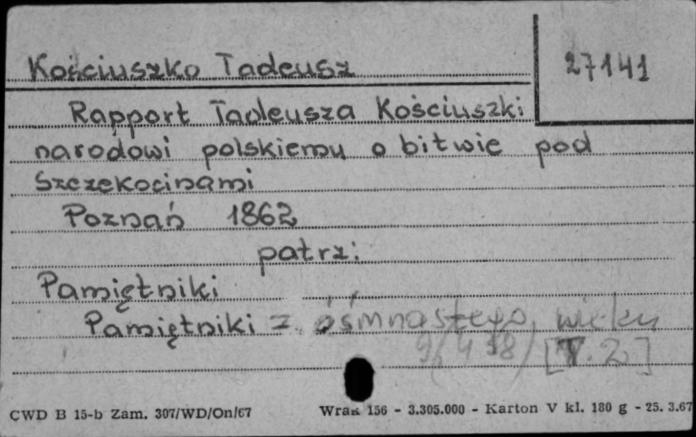 Kościuszko Tadeusz
27141
Rapport Tadeusza Kościuszki
narodowi polskiemu o bitwie pod
Szczekocinami
Poznań 1862
patrz:
Pamiętniki
Pamiętniki z ośmnastego wieku
[T. 2]
CWD B 15-b Zam. 307/WD/On/67 Wrak 156 - 3.305.000 - Karton V kl. 180 g - 25. 3.67